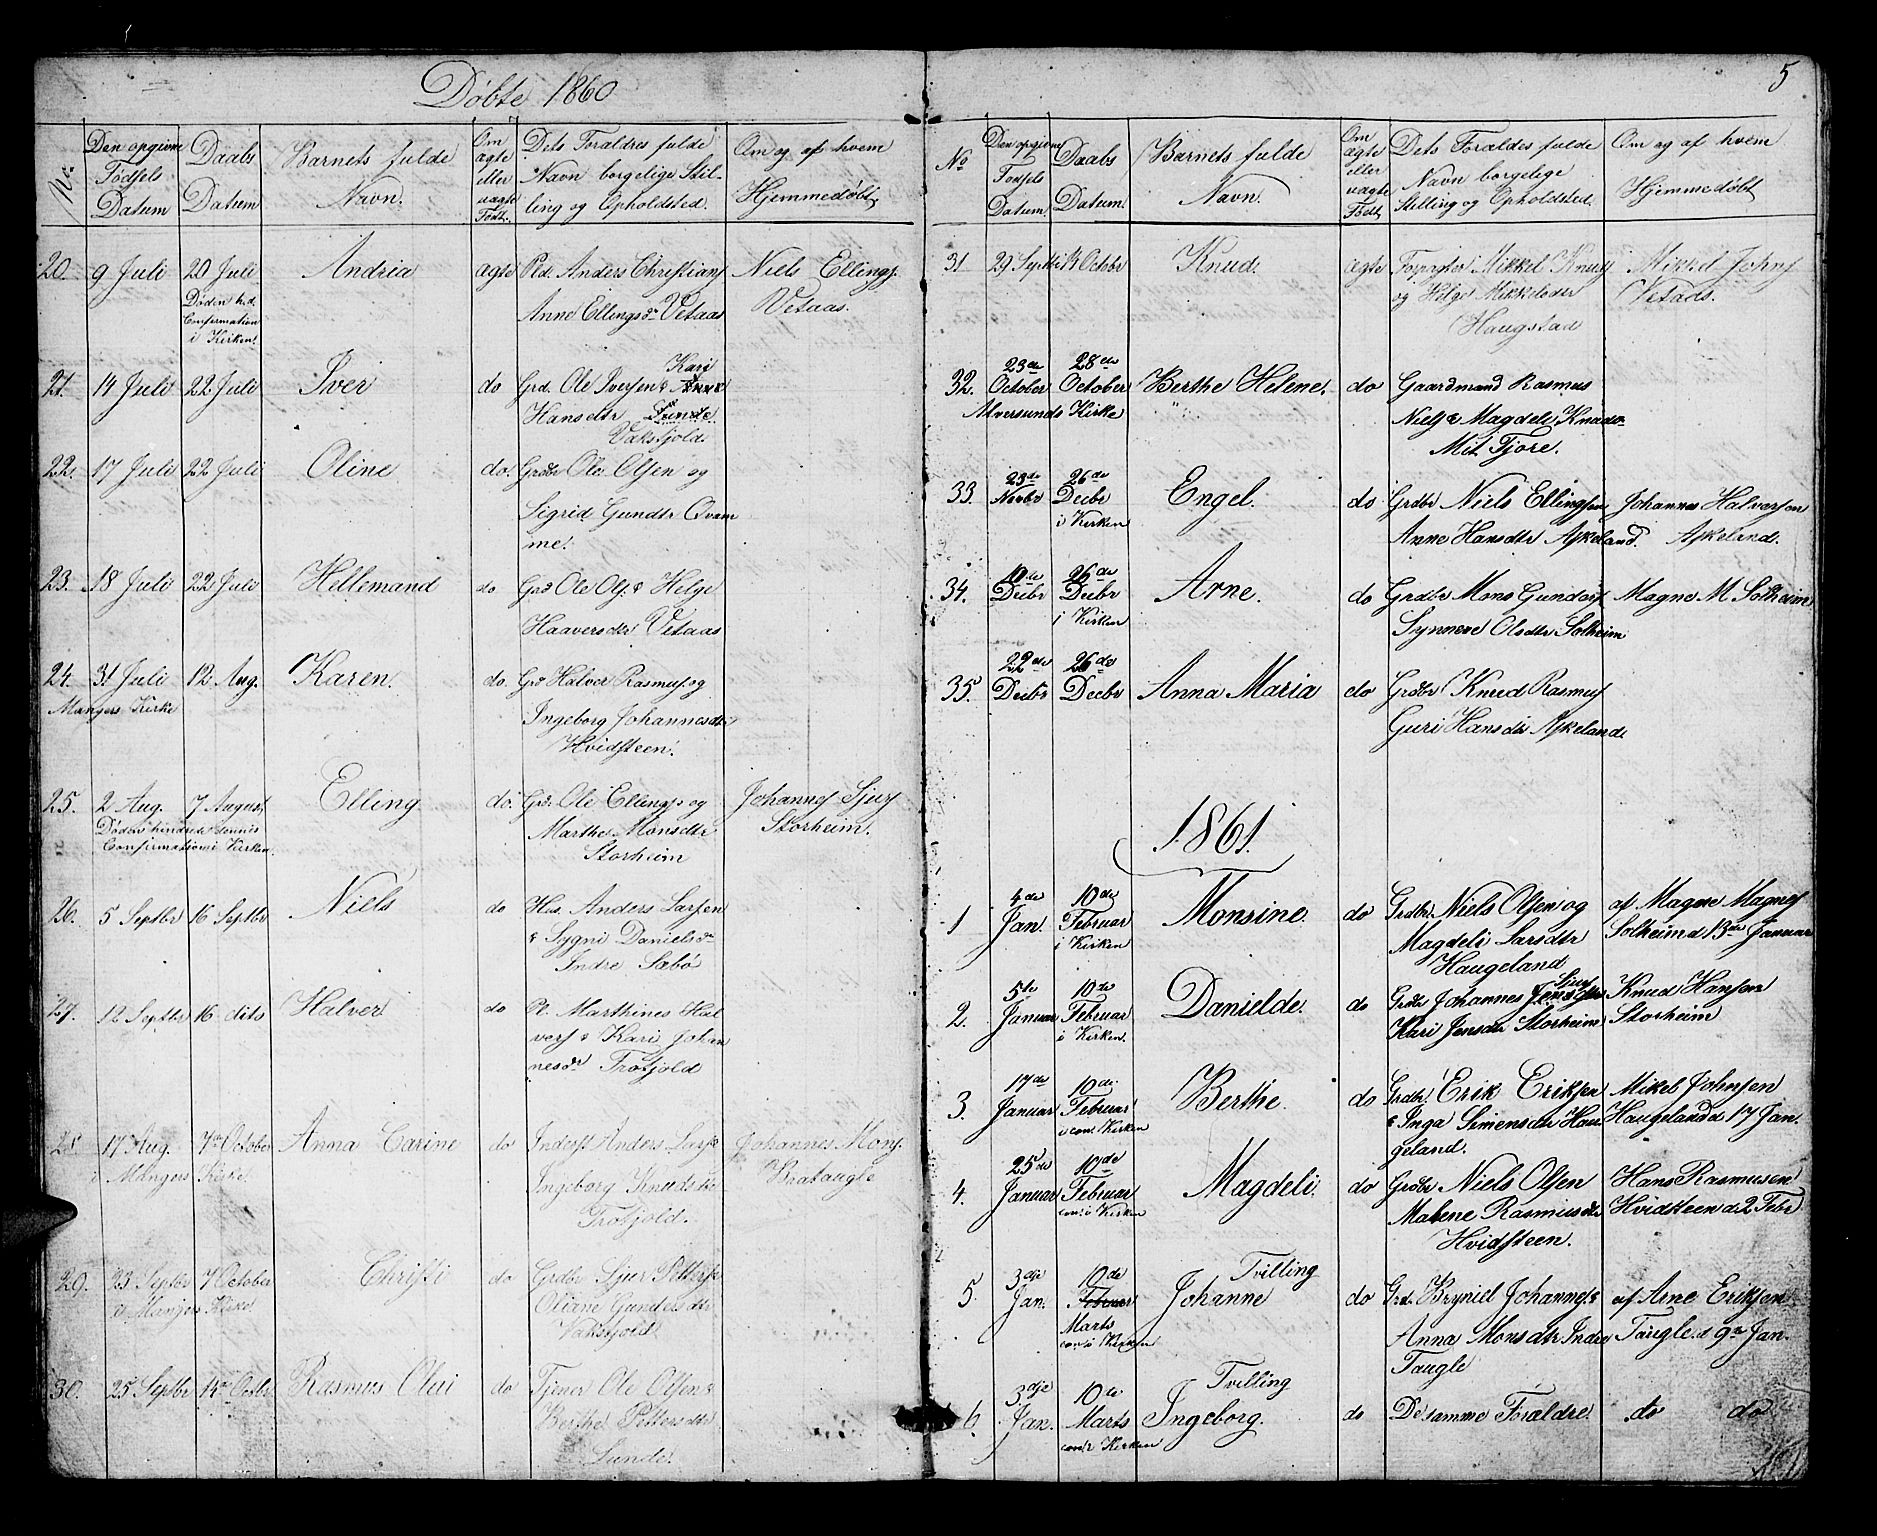 Døbte 1860
No
Den opgivne Fødsels Datum
Daabs Datum
Barnets fulde Navn.
Om ægte eller uægte Født.
Dets Foraldres fulde Navn borgelige Stilling og Opholdsted.
Om og af hvem Hjemmedøbt
20. 9 Juli 20 Juli Andria ægte Pld. Anders Christians Niels Ellings.
Døden hd. Anne Ellingsdr Vetaas Vetaas.
Confirmation
i Kirken.
21. 14 Juli 22 Juli Iver do Grd. Ole Iversen & Kari
Hansdtr
Vaksfjold
22. 17 Juli 22 Juli Oline do. Grdbr Ole Olsen og
Sigrid Gundtr Qvam
me.
23. 18 Juli 22 Juli Hellemand do Grd Ole Ols. & Helge
Haaversdtr Vetaas
24. 31 Juli 12 Aug. Karen. do. Grd Halver Rasmus. og
Mangers Kirke Ingeborg Johannesdr
Hvidsteen.
25. 2 Aug. 7 August Elling do. Grd. Ole Ellings. og Johannes Sjurs
Døden hindrede dennes Marthe Monsdtr Storheim.
Confirmation i Kirken. Storheim
26. 5 Septbr 16 Septbr Niels do Hus. Anders Larsen
& Sygni Danielsdr
Indre Sæbø
27. 12 Septbr 16 dito Halver do Pl. Marthines Hal
vers & Kari Johan
nesdr Trofjold
28. 17 Aug. 7de October Anna Carine do Inderst Anders Lars & Johannes Mons.
i Mangers Kirke. Ingeborg Knudsdr Brataugle
Trofjold.
29. 23 Septbr 7 October Christi do Grdbr Sjur Petters &
i Mangers Kirke. Oliane Gundersdtr
Vaksfjold
30. 25 Septbr 14de Octbr Rasmus Olai do Tjener Ole Olsen &
Berthe Pettersdtr
Lunde.
5
No
Den opgivne Fødsels Datum.
Daabs Datum.
Barnets fulde Navn.
Om ægte eller uægte Født
Dets Foraldes fulde Navn borgelige Stilling og Opholdsted.
Om og af hvem Hjemmedøbt
31 29 Septbr 14 Octobr Knud. ægte Forpagter Mikkel Knuds Mikkel Johns
og Helge Mikkelsdtr Vetaas.
Haugstad
32. 23de October 28de October Berthe Helene. do Gaardmand Rasmus
Alversunds Kirke Niels & Magdeli Knudsdr
Mit Fjore.
33. 23de Novbr 26de Decbr Engel. do Grdbr Niels Ellingsen Johannes Halversen
i Kirken Anne Hansdtr Askeland. Askeland.
34. 10de Decbr 26de Decbr Arne. do Grdbr Mons Gunders Magne M Solheim
i Kirken Synneve Olsdtr Solheim
35. 22de Decbr 26de Decbr Anna Maria do Grdbr Knud Rasmus
Guri Hansdtr Askeland
1861.
1 4de Jan. 10de Februar Monsine. do Grdbr. Niels Olsen og af Magne Magnes
i Kirken Magdeli Larsdtr Solheim d 13de Januar
Haugeland
2. 5te Januar 10de Februar Danielde. do Grdbr Johannes Sjurs Knud Hansen
i Kirken. Kari Jensdtr Storheim Storheim
3. 17de Januar 10de Februar Berthe. do Grdbr. Erik Eriksen Mikel Johnsen
i conf. Kirken & Inga Simensdtr Hau Haugeland d 17 Jan.
geland.
4. 25de Januar 10de Februar Magdeli. do Grdbr Niels Olsen Hans Rasmusen
conf. i Kirken Malene Rasmusdtr Hvidsteen d. 2 Febr
Hvidsteen.
5. 3dje Jan. 10de Februar Tvilling Johanne do Grd. Bryniel Johannes. & af Arne Eriksen
Marts Anna Monsdtr Indre Taugle d 9de Jan.
conf. i Kirken Taugle
6. 3dje Jan. 10de Marts Tvilling Ingeborg. do De samme Forældre. do do
conf. i Kirken